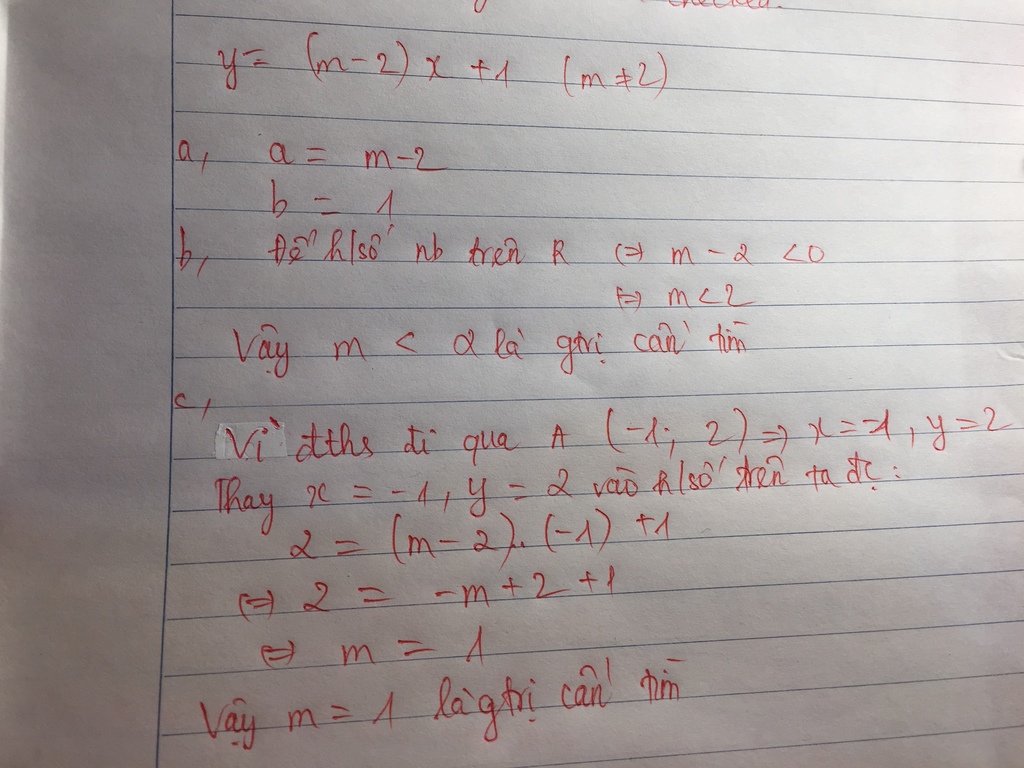 y = (m-2) x +1 (m ≠ 2)
a, a = m-2
b = 1
b, Để h/số nb trên R ⇔ m - 2 < 0
⇔ m < 2
Vậy m < 2 là gtrị cần tìm
c,
Vì đths đi qua A (-1; 2) ⇒ x = -1, y = 2
Thay x = -1, y = 2 vào h/số trên ta đc:
2 = (m-2). (-1) +1
⇔ 2 = -m + 2 + 1
⇔ m = 1
Vậy m = 1 là gtrị cần tìm